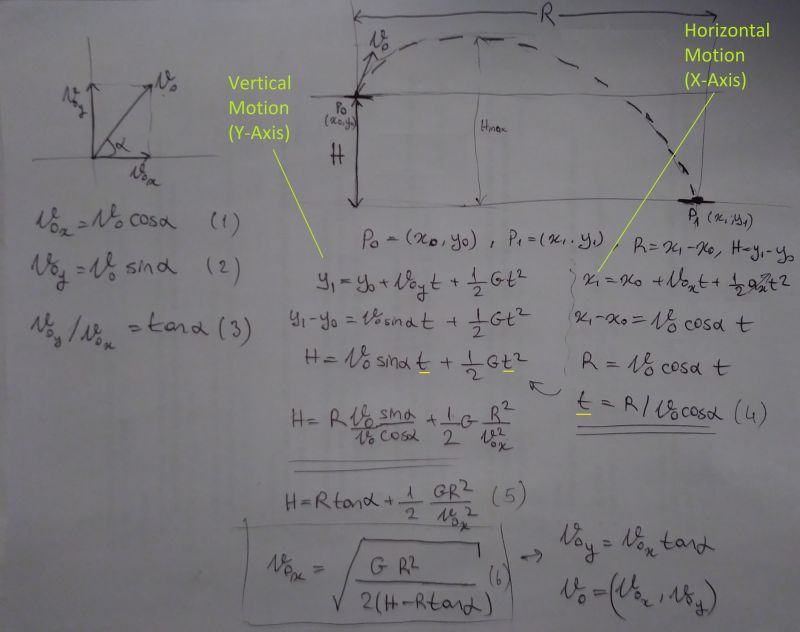 R
Horizontal
Motion
(X-Axis)
Vertical
Motion
(Y-Axis)
v₀
v₀y
v₀
α
v₀x
P₀
(x₀,y₀)
H
Hmax
P₁ (x₁,y₁)
P₀ = (x₀,y₀), P₁=(x₁,y₁), R=x₁-x₀, H=y₁-y₀
v₀x = v₀ cosα (1)
v₀y = v₀ sinα (2)
v₀y/v₀x = tanα (3)
y₁ = y₀ + v₀y t + 1/2 Gt²
y₁-y₀ = v₀ sinα t + 1/2 Gt²
H = v₀ sinα t + 1/2 Gt²
H = R v₀ sinα / v₀ cosα + 1/2 G R²/v₀x²
x₁ = x₀ + v₀x t + 1/2 aₓt²
x₁-x₀ = v₀ cosα t
R = v₀ cosα t
t = R/v₀cosα (4)
H = R tanα + 1/2 GR²/v₀x² (5)
v₀x = √(G R² / 2(H-Rtanα)) (6)
→ v₀y = v₀x tanα
v₀ = (v₀x, v₀y)